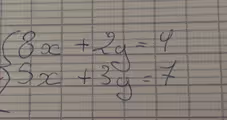 8x + 2y = 4
5x + 3y = 7